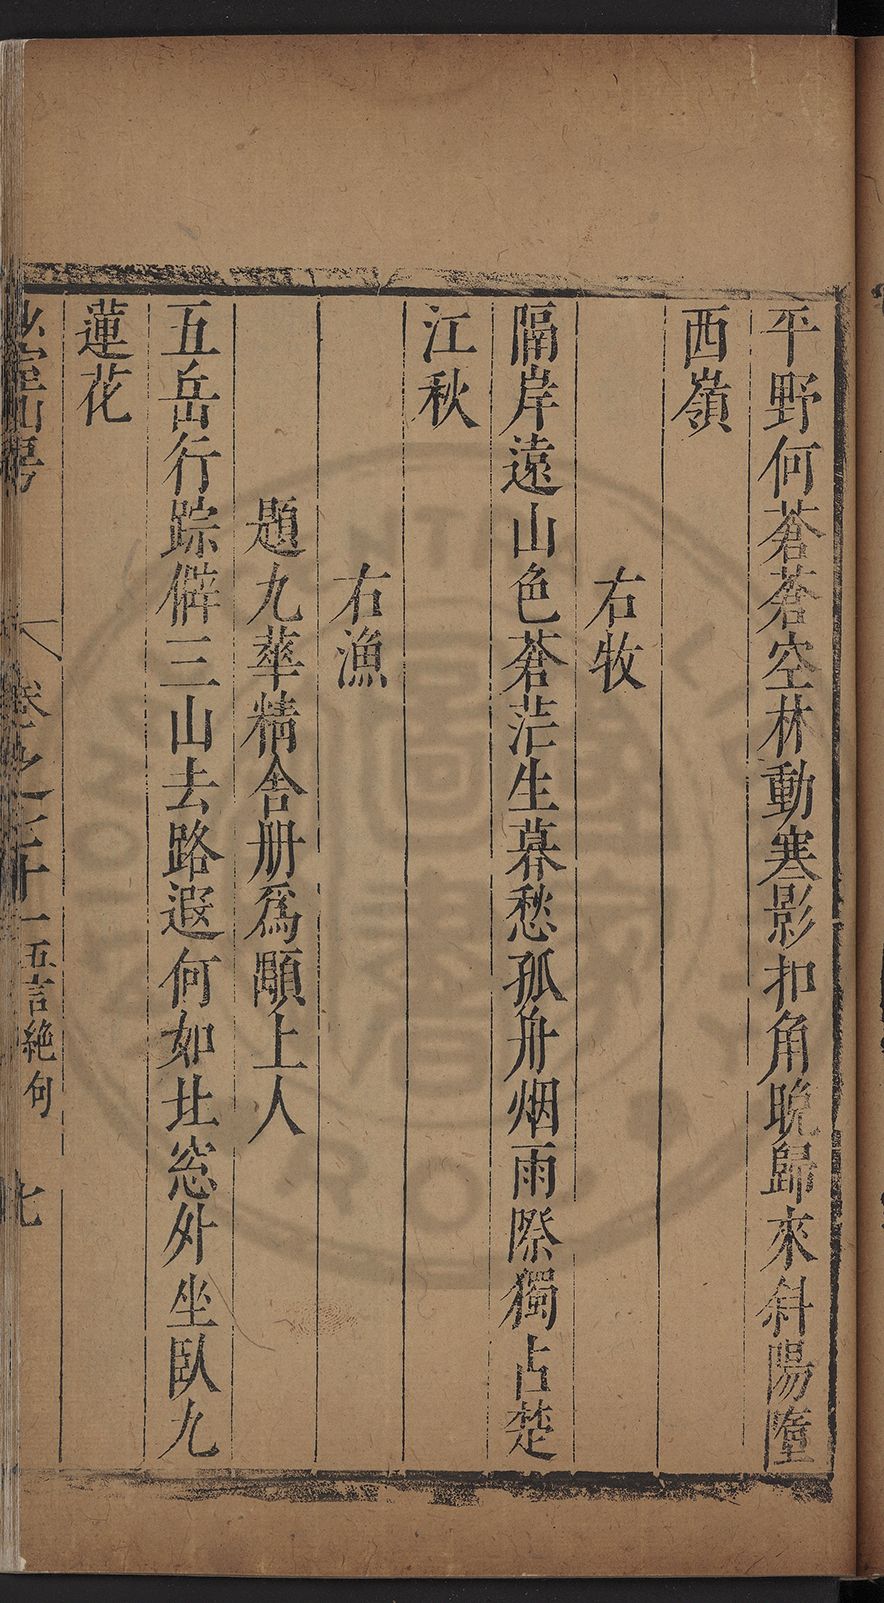 平野何蒼蒼空林動寒影扣角晚歸來斜陽墮
西嶺
右牧
隔岸遠山色蒼茫生暮愁孤舟烟雨際獨占楚
江秋
右漁
題九華精舍册爲顒上人
五岳行踪僻三山去路遐何如北窓外坐臥九
蓮花
山房
卷之二十一五言絶句 七